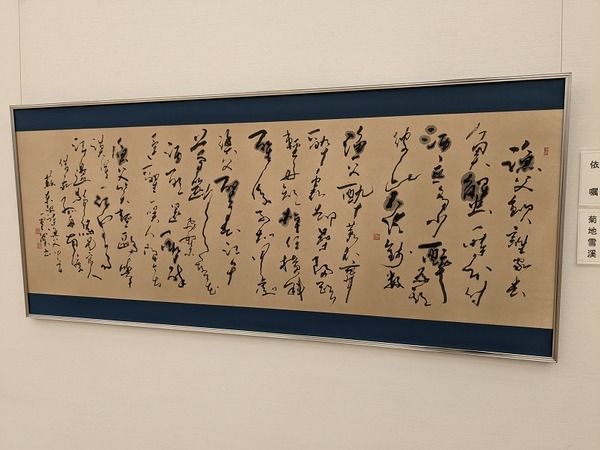 漁父飲誰家去
魚蟹一時分付
酒無多少醉為期
彼此不論錢數
漁父醉蓑衣舞
醉裏却尋歸路
輕舟短棹任橫斜
醒後不知何處
漁父醒春江午
夢斷落花飛絮
酒醒還醉醉
還醒一笑人間今古
漁父笑輕鷗舉
漠漠一江風雨
江邊騎馬是官人
借我孤舟南渡
依嘱
菊地雪溪